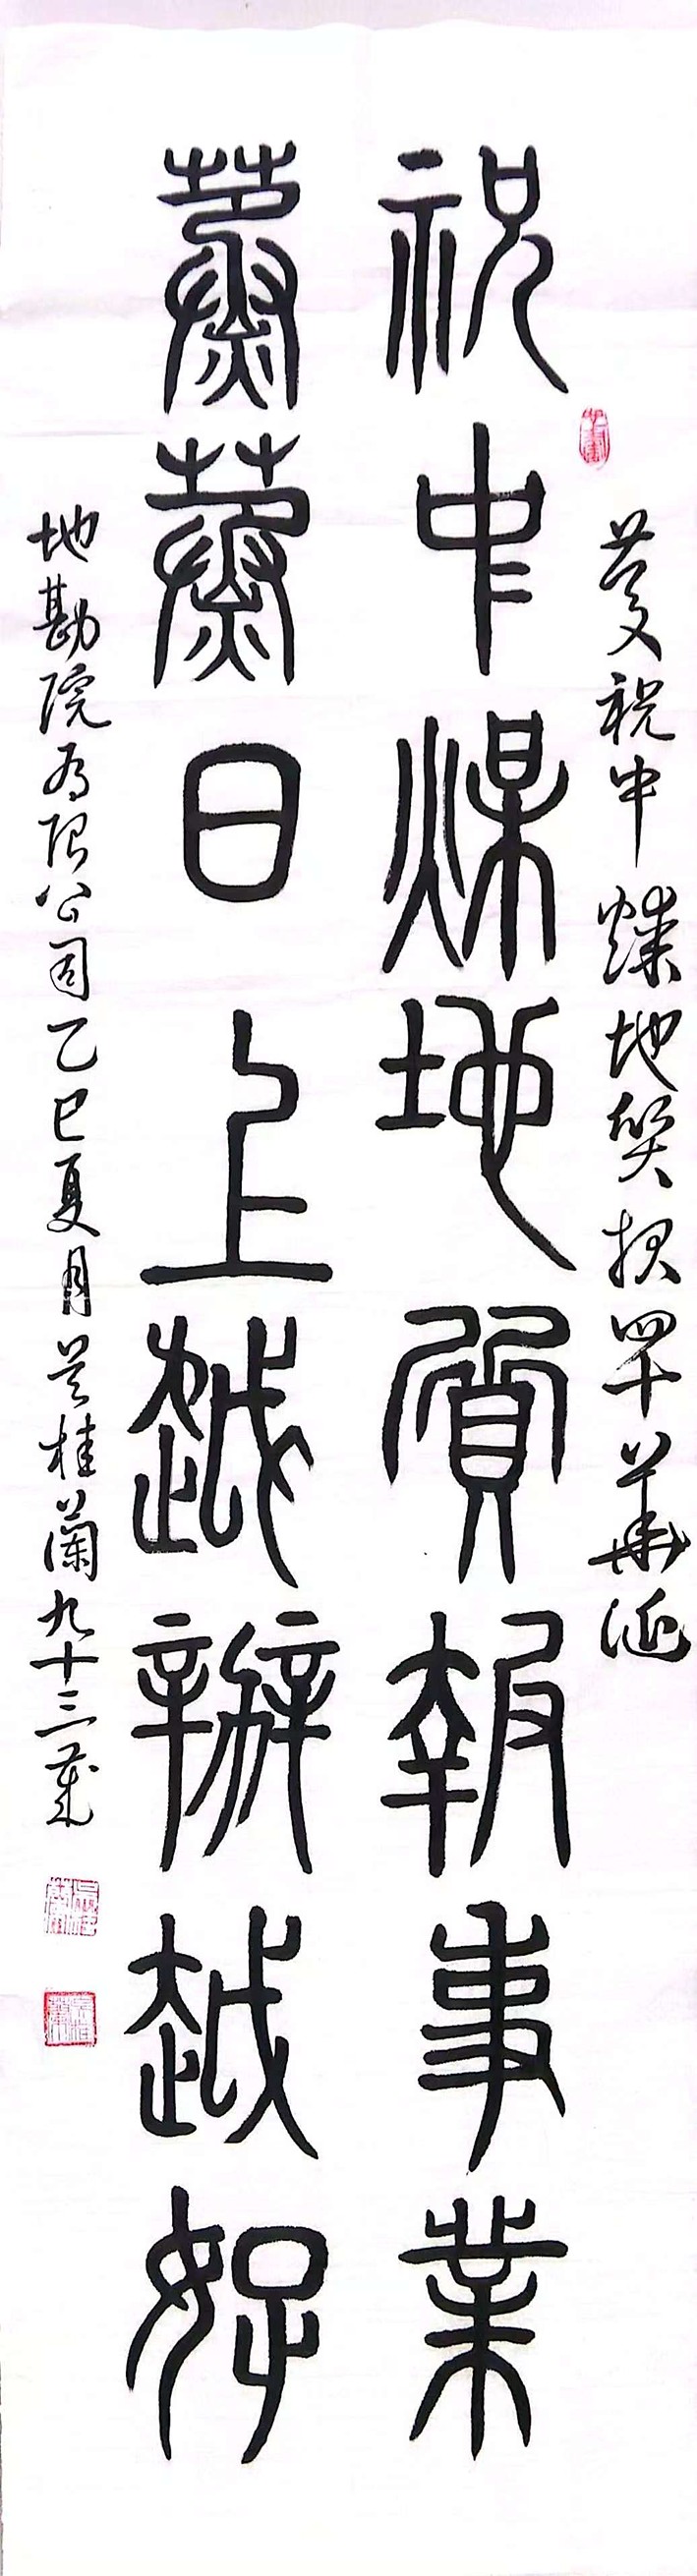 慶祝中煤地質报四十華诞
祝中煤地質報事業
蒸蒸日上越辦越好
地勘院有限公司乙巳夏月吴桂蘭九十三歲